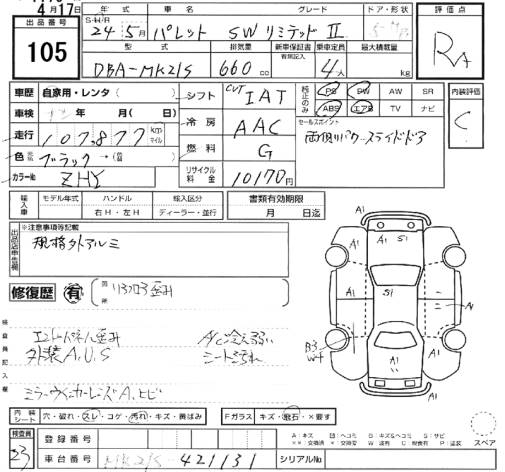 4月17日
出品番号
105
年式
車名
グレード
ドア・形状
評価点
S・H・R
24年5月
パレット
SW リミテッド II
RA
型式
排気量
新車保証書
有無記入
乗車定員
最大積載量
DBA-MK21S
660cc
4人
kg
車歴 自家用・レンタ( )
シフト
CVT
IAT
純正のみ
PS PW AW SR
ABS エアB TV ナビ
内装評価
C
車検
年 月( )日
冷房
AAC
セールスポイント
両側パワースライドドア
走行
107,877
km
マイル
色
ブラック
燃料
G
カラー№
ZHY
リサイクル料金
10170円
輸入車
モデル年式
ハンドル
右H・左H
輸入区分
ディーラー・並行
書類有効期限
月 日迄
出品店申告欄
※注意事項等記載
規格外アルミ
修復歴
有
箇所
検査員記入欄
外装A,U,S
A/C冷え弱い
シート汚れ
ミラーウィンカーレンズA,ヒビ
A1
A1
S1
A1
A1
A1
A1
S1
A1
B3
A1
A1
内装シート
穴・破れ・スレ・コゲ・汚れ・キズ・黄ばみ
Fガラス
キズ・飛石・×要す
検査員
23
登録番号
車台番号
MK21S-421131
シリアル№
スペア